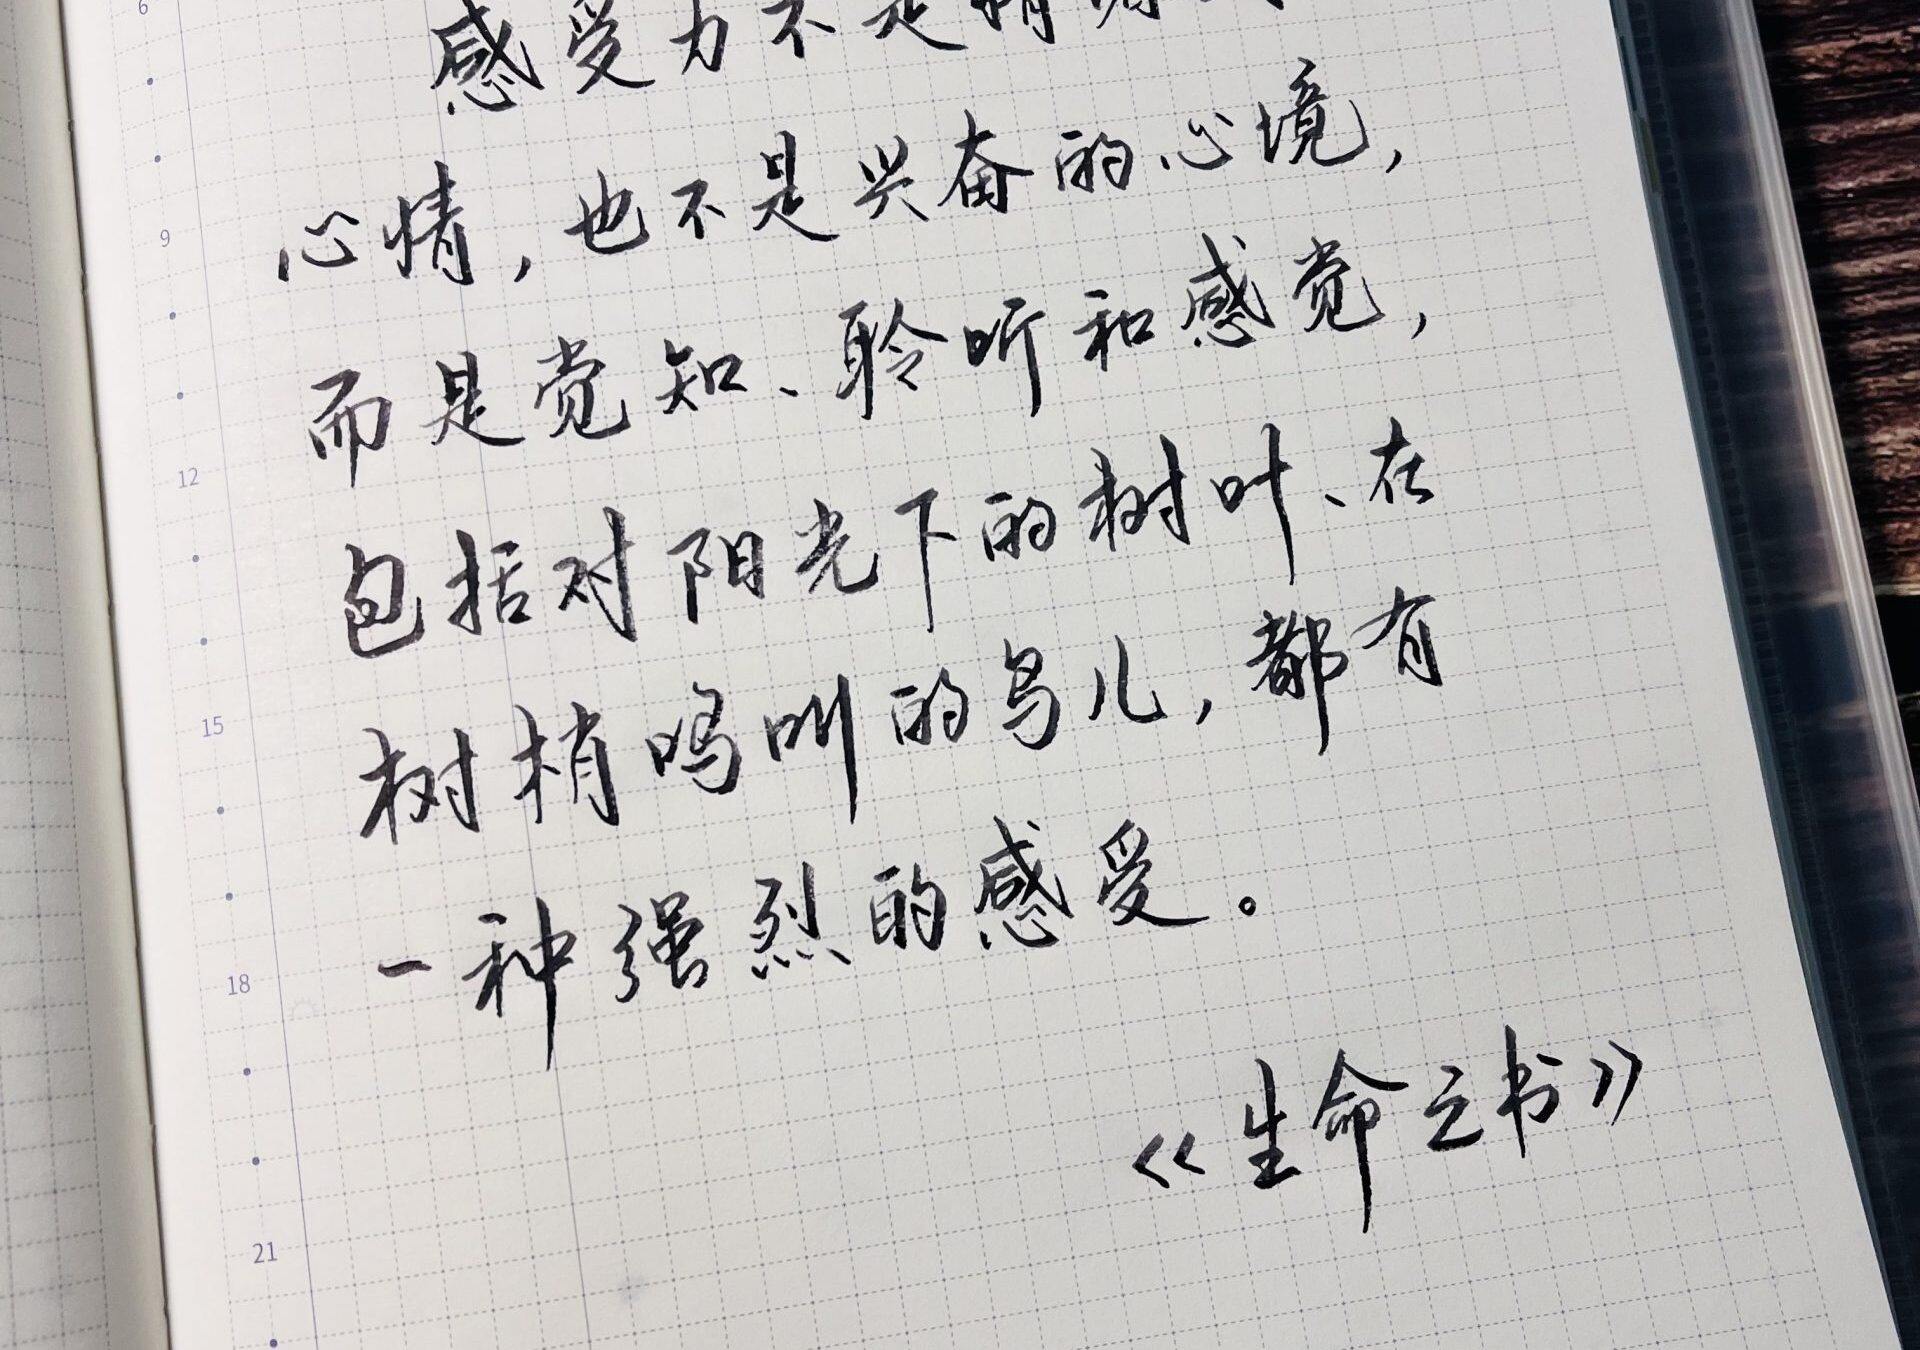 6
感受力不是情绪
心情，也不是兴奋的心境，
9
而是觉知、聆听和感觉，
12
包括对阳光下的树叶、在
15
树梢鸣叫的鸟儿，都有
18
一种强烈的感受。
《生命之书》
21